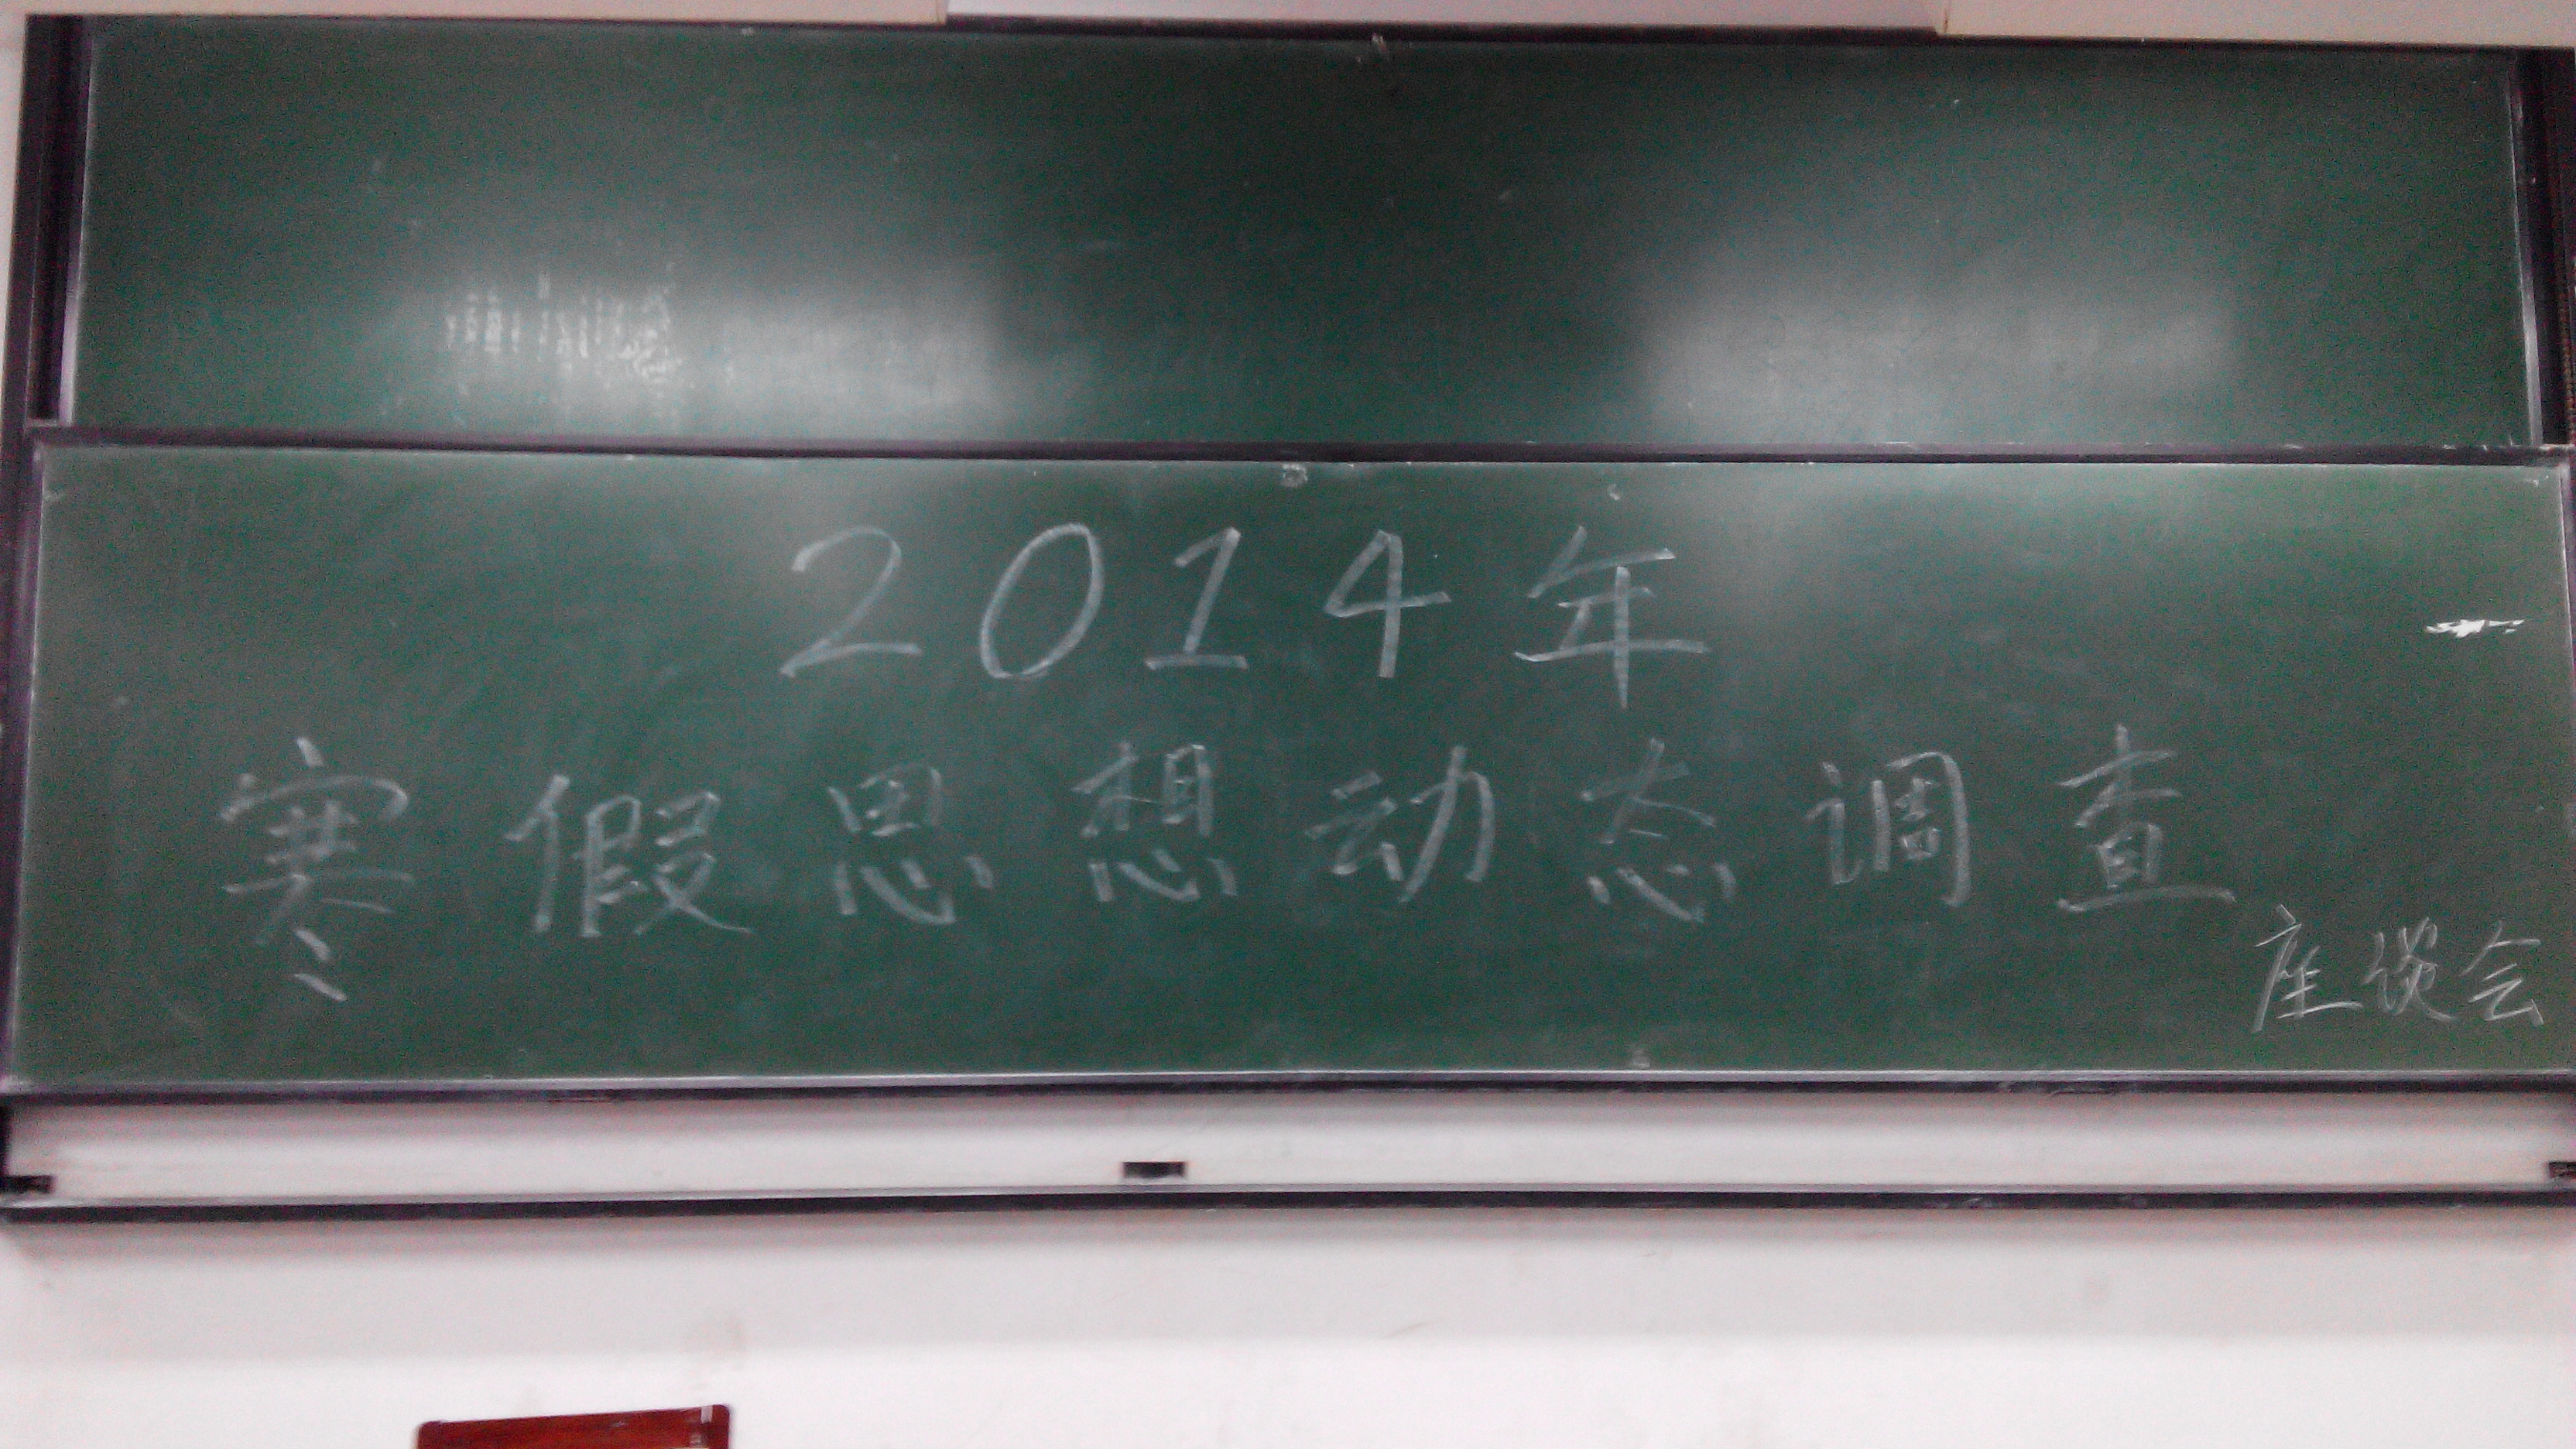 2014年
寒假思想动态调查
座谈会